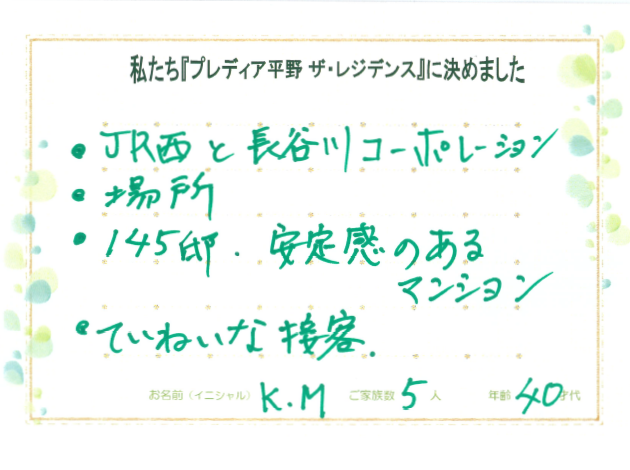 私たち『プレディア平野 ザ・レジデンス』に決めました
• JR西と長谷川コーポレーション
• 場所
• 145邸.安定感のある
マンション
• ていねいな接客.
お名前（イニシャル） K.M ご家族数 5 人 年齢 40才代